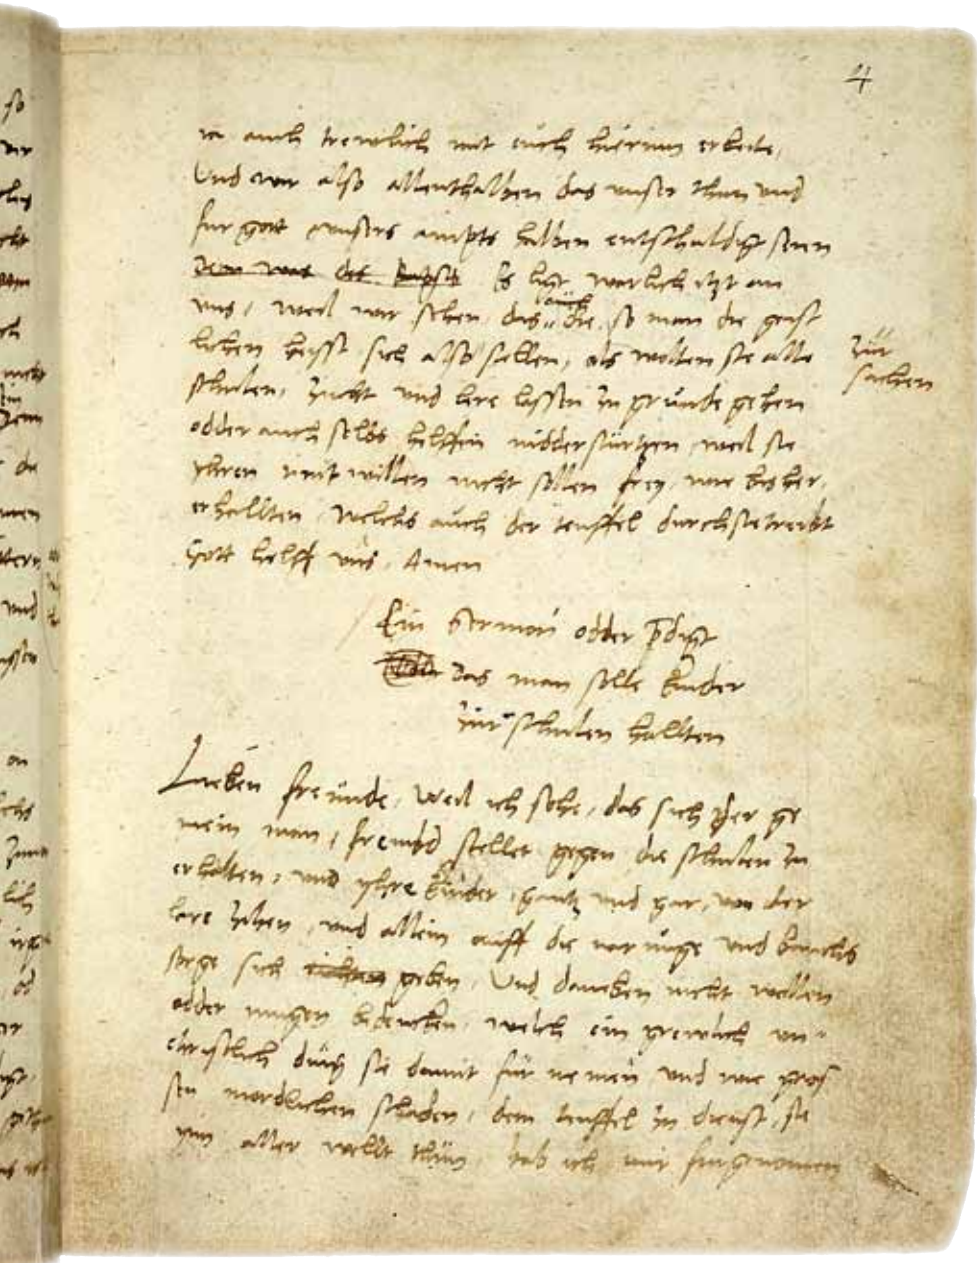 4
ia auch trewlich mit euch hierinn erbeite,
Und wir also allenthalben das unser thun und
fur gott unsers ampts halben entschuldigt seien
Es ligt warlich itzt an
uns, weil wir sehen das auch die so man die geist
lichen heisst sich also stellen, als wolten sie alle
schulen, zucht und lere lassen zu grunde gehen
odder auch selbs helffen nidderstürtzen, weil sie
yhren mutwillen nicht sollen frey, wie bisher,
erhallten, welchs auch der teuffel durch sie treibt
Gott helff uns, Amen
zur
sachen
Ein Sermon odder pdigt
Das man solle kinder
zur schulen hallten
Lieben freunde, weil ich sehe, das sich der ge
mein man, frembd stellet gegen die schulen zu
erhalten, und yhre kinder, gantz und gar, von der
lare zihen, und allein auff die narunge und bauchs
sorge sich geben, Und daneben nicht wollen
odder mugen bedencken, welch ein grewlich un-
christlich ding sie damit fur nemen, und wie gros
sen mordlichen schaden, dem teuffel zu dienst, sie
ynn aller wellt thun, hab ich mir furgenomen